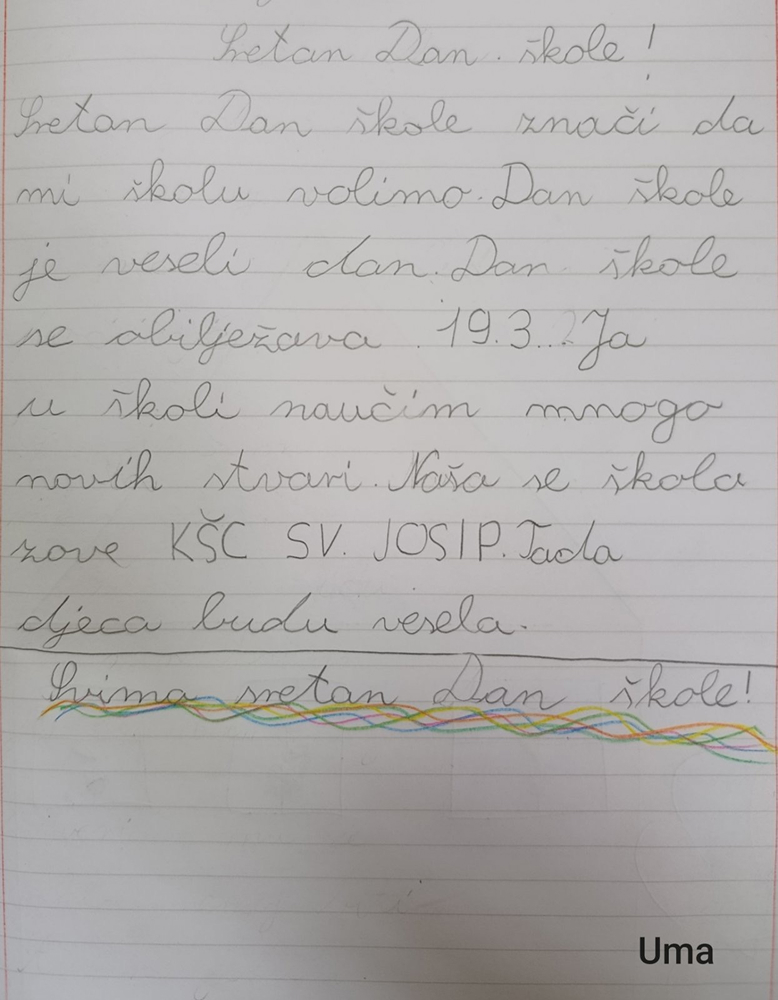 Sretan Dan škole!
Sretan Dan škole znači da
mi školu volimo. Dan škole
je veseli dan. Dan škole
se obilježava 19.3.. Ja
u školi naučim mnogo
novih stvari. Naša se škola
zove KŠC SV. JOSIP. Tada
djeca budu vesela.
Svima sretan Dan škole!
Uma